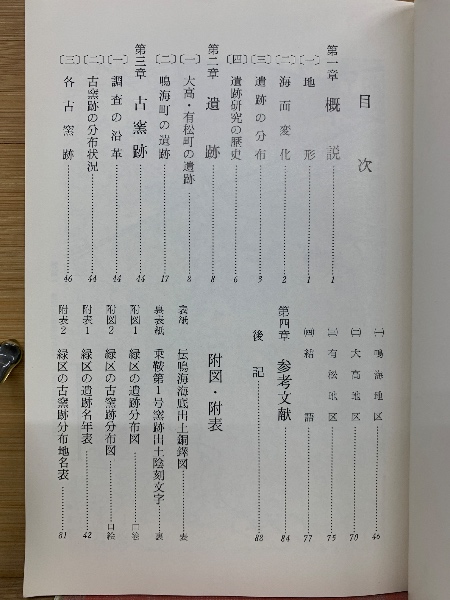 目次
第一章 概説 1
(一) 地形 1
(二) 海面変化 2
(三) 遺跡の分布 3
(四) 遺跡研究の歴史 6
第二章 遺跡 8
(一) 大高・有松町の遺跡 8
(二) 鳴海町の遺跡 17
第三章 古窯跡 44
(一) 調査の沿革 44
(二) 古窯跡の分布状況 44
(三) 各古窯跡 46
(一) 鳴海地区 46
(二) 大高地区 70
(三) 有松地区 75
(四) 結語 77
第四章 参考文献 84
後記 88
附図・附表
表紙 伝鳴海海底出土銅鐸図 表
裏表紙 乗鞍第1号窯跡出土陰刻文字 裏
附図1 緑区の遺跡分布図 口絵
附図2 緑区の古窯跡分布図 口絵
附表1 緑区の遺跡名年表 42
附表2 緑区の古窯跡分布地名表 81